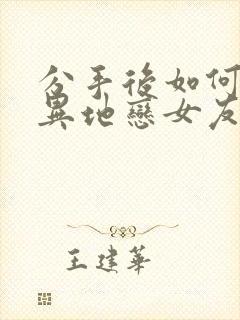 分手後如何
異地戀女友
王建華